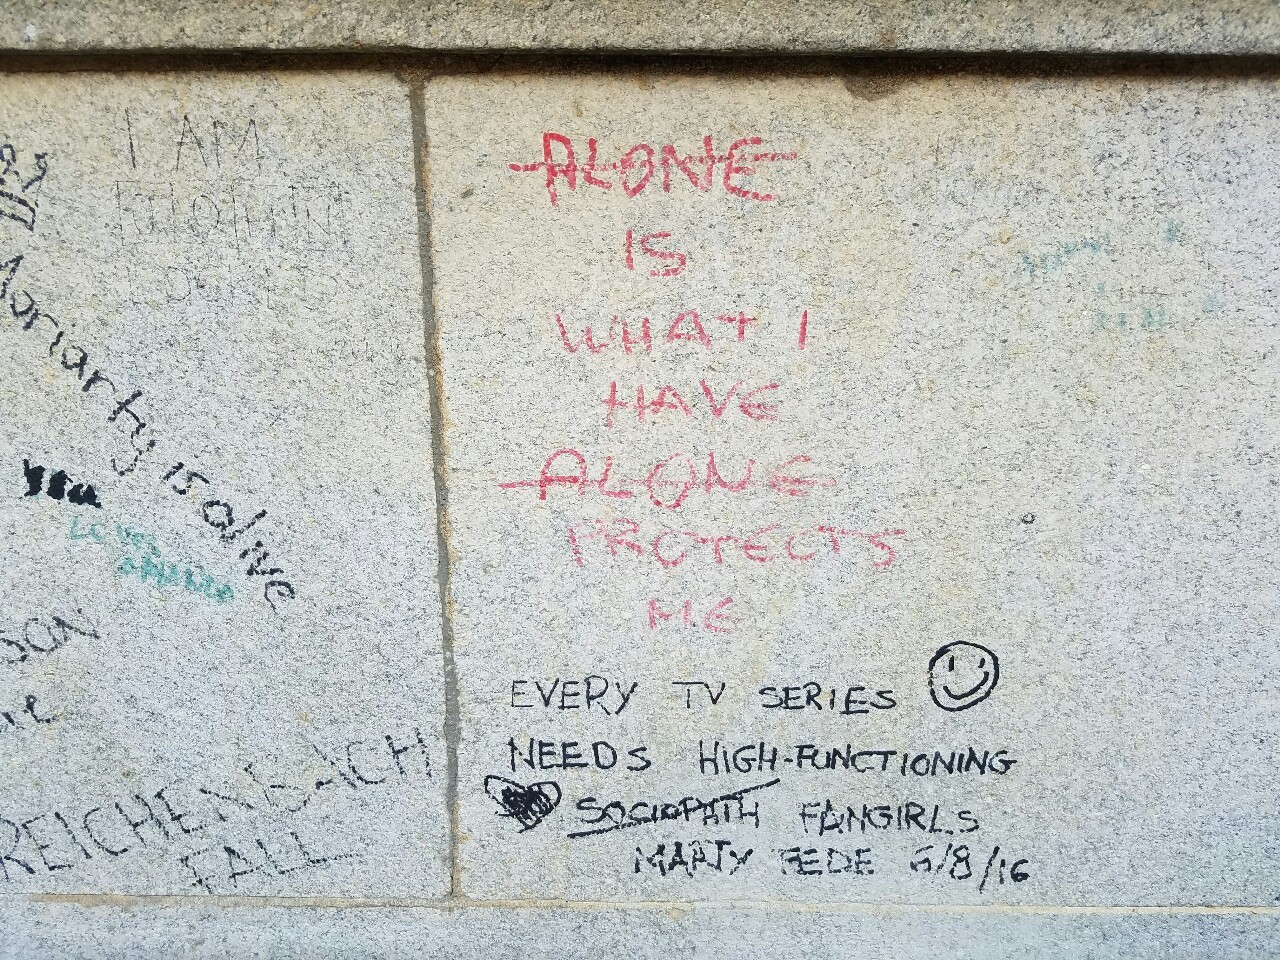 I AM
Moriarty is alive
you
REICHENBACH
FALL
ALONE
IS
WHAT I
HAVE
ALONE
PROTECTS
ME
EVERY TV SERIES
NEEDS HIGH-FUNCTIONING
SOCIOPATH FANGIRLS
MARTY FEDE 6/8/16